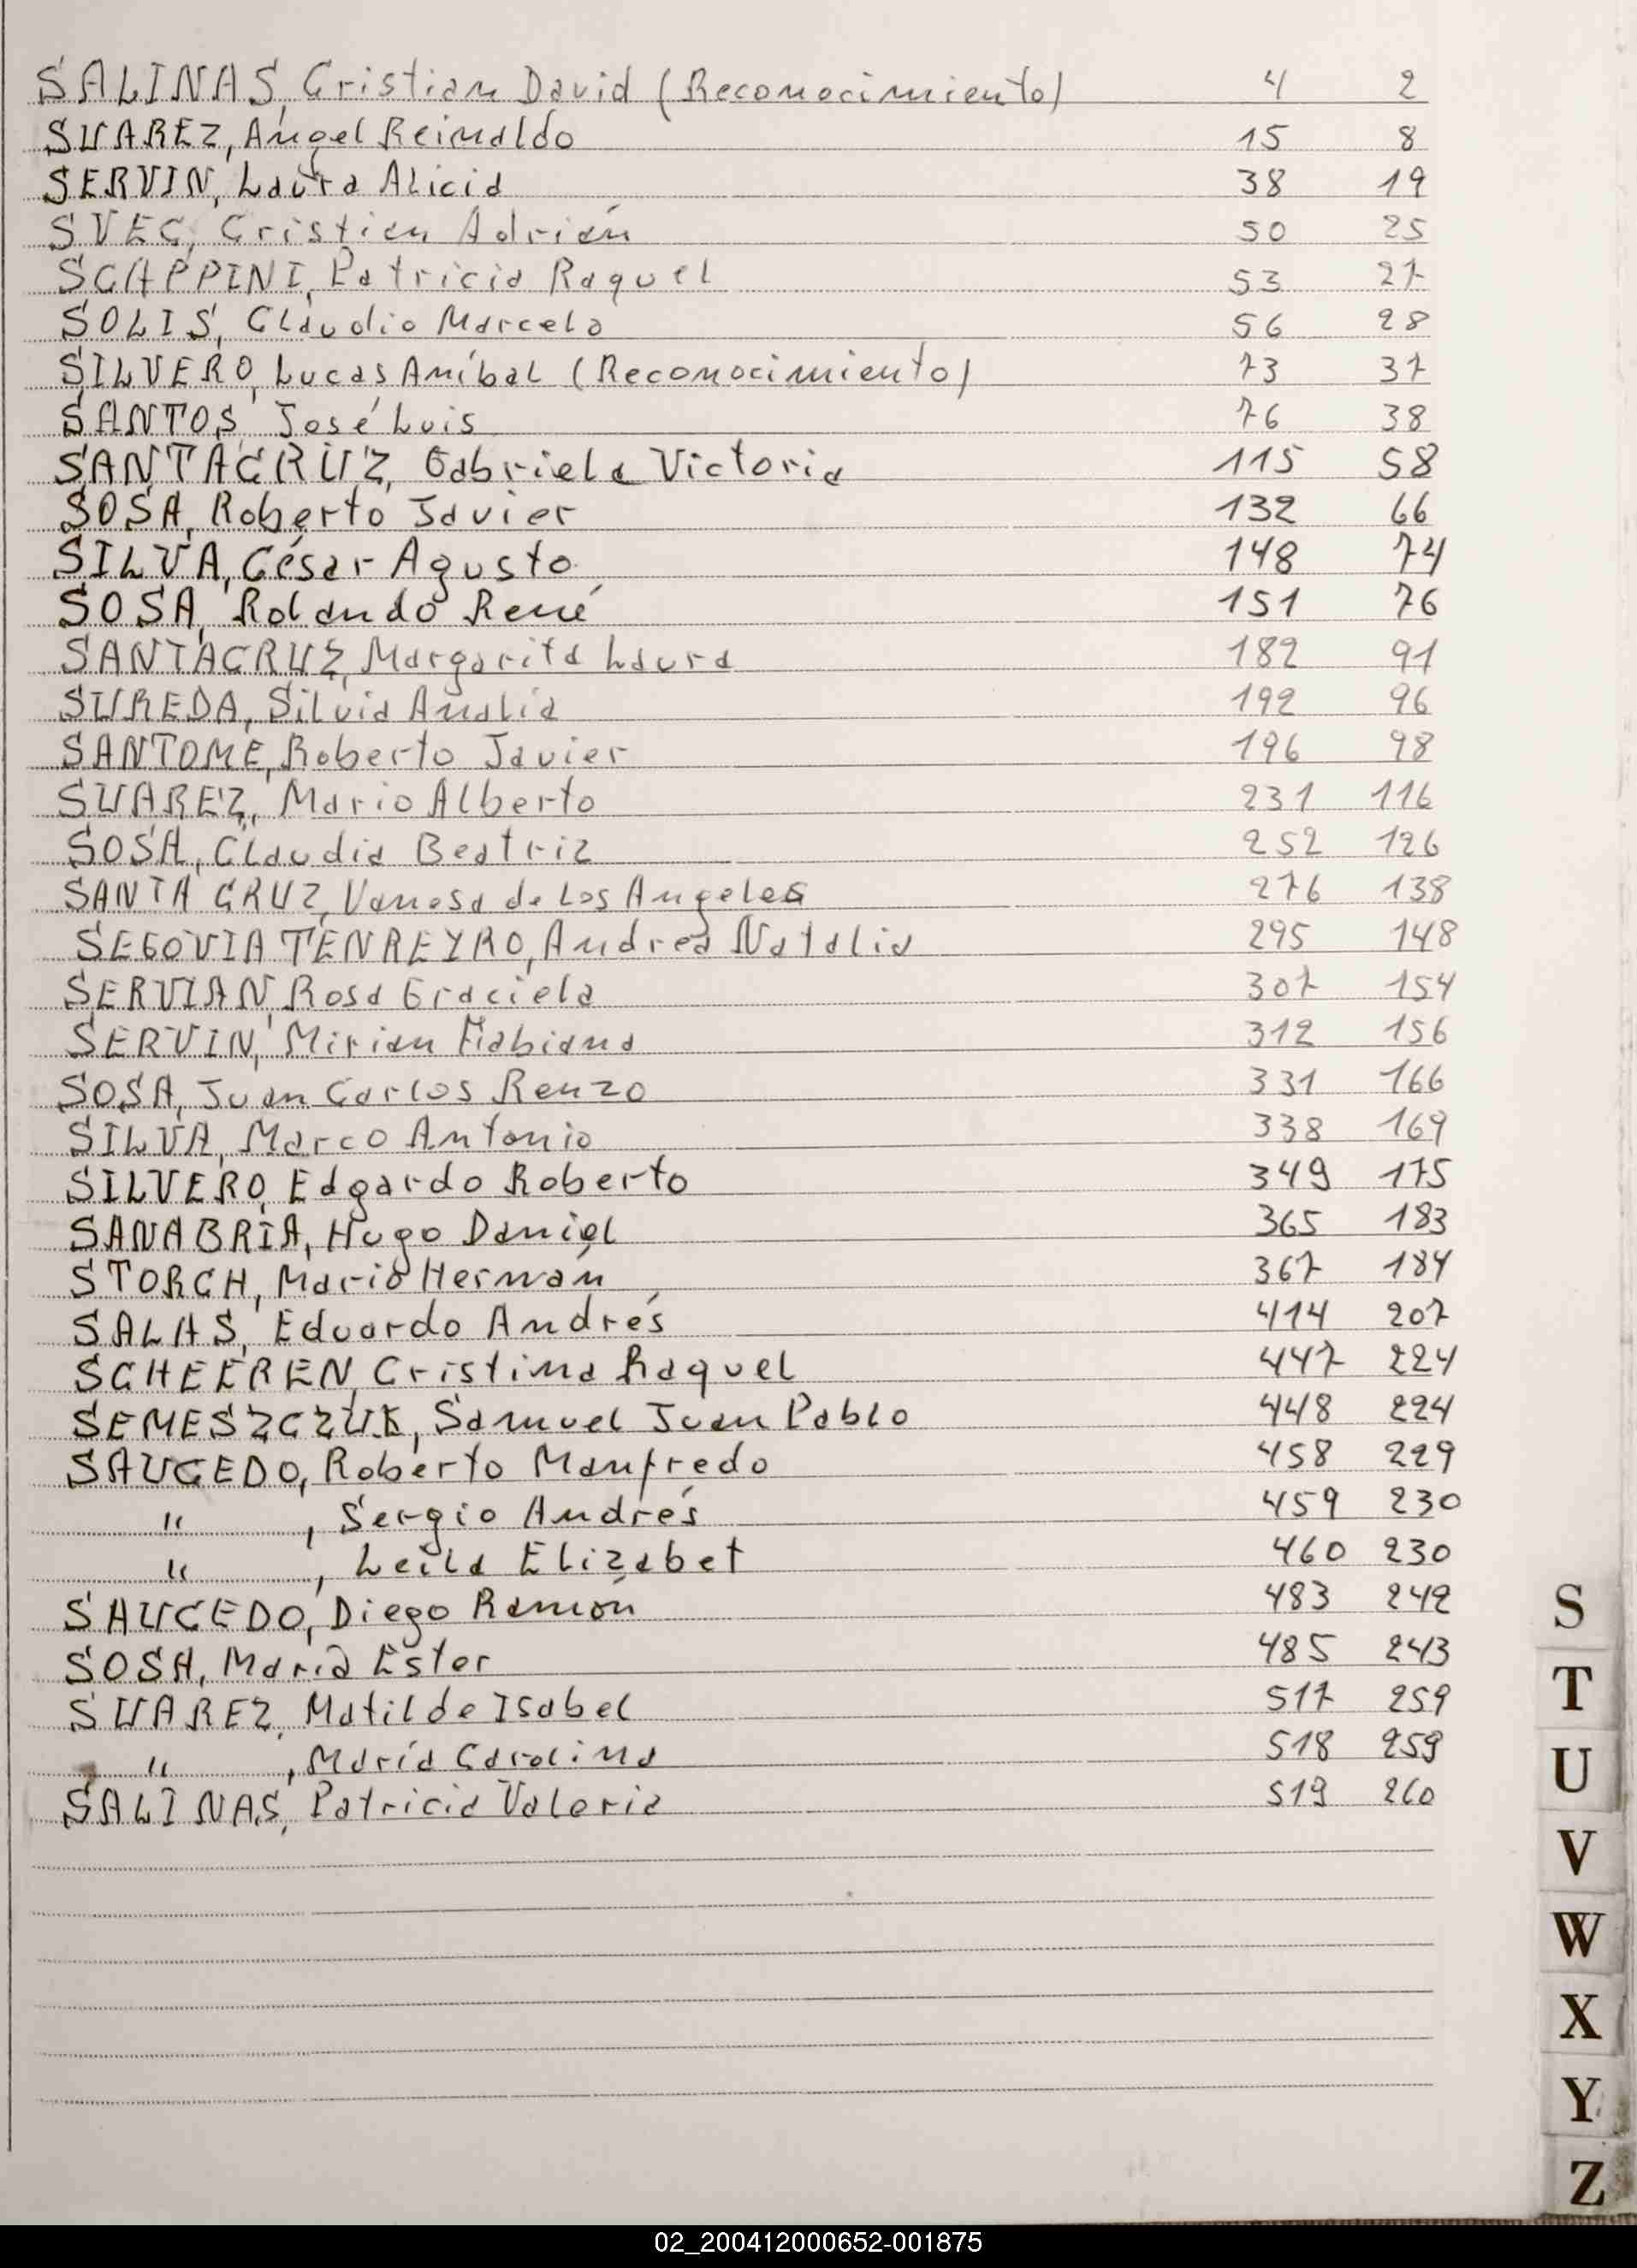 SALINAS, Cristian David (Reconocimiento) 4 2
SUAREZ, Angel Reinaldo 15 8
SERVIN, Laura Alicia 38 19
SVEC, Cristian Adrián 50 25
SCAPPINI, Patricia Raquel 53 27
SOLIS, Claudio Marcelo 56 28
SILVERO, Lucas Aníbal (Reconocimiento) 73 37
SANTOS, José Luis 76 38
SANTACRUZ, Gabriela Victoria 115 58
SOSA, Roberto Javier 132 66
SILVA, César Agusto 148 74
SOSA, Rolando René 151 76
SANTACRUZ, Margarita Laura 182 91
SUREDA, Silvia Analia 192 96
SANTOME, Roberto Javier 196 98
SUAREZ, Mario Alberto 231 116
SOSA, Claudia Beatriz 252 126
SANTA CRUZ, Vanesa de Los Angeles 276 138
SEGOVIA TENREYRO, Andrea Natalia 295 148
SERVIAN, Rosa Graciela 307 154
SERVIN, Mirian Fabiana 312 156
SOSA, Juan Carlos Renzo 331 166
SILVA, Marco Antonio 338 169
SILVERO, Edgardo Roberto 349 175
SANABRIA, Hugo Daniel 365 183
STORCH, Mario Hernán 367 184
SALAS, Eduardo Andrés 414 207
SCHEEREN, Cristina Raquel 447 224
SEMESZCZUK, Samuel Juan Pablo 448 224
SAUCEDO, Roberto Manfredo 458 229
" , Sergio Andrés 459 230
" , Leila Elizabet 460 230
SAUCEDO, Diego Ramón 483 242
SOSA, María Ester 485 243
SUAREZ, Matilde Isabel 517 259
" , María Carolina 518 259
SALINAS, Patricia Valeria 519 260
S
T
U
V
W
X
Y
Z
02_200412000652-001875